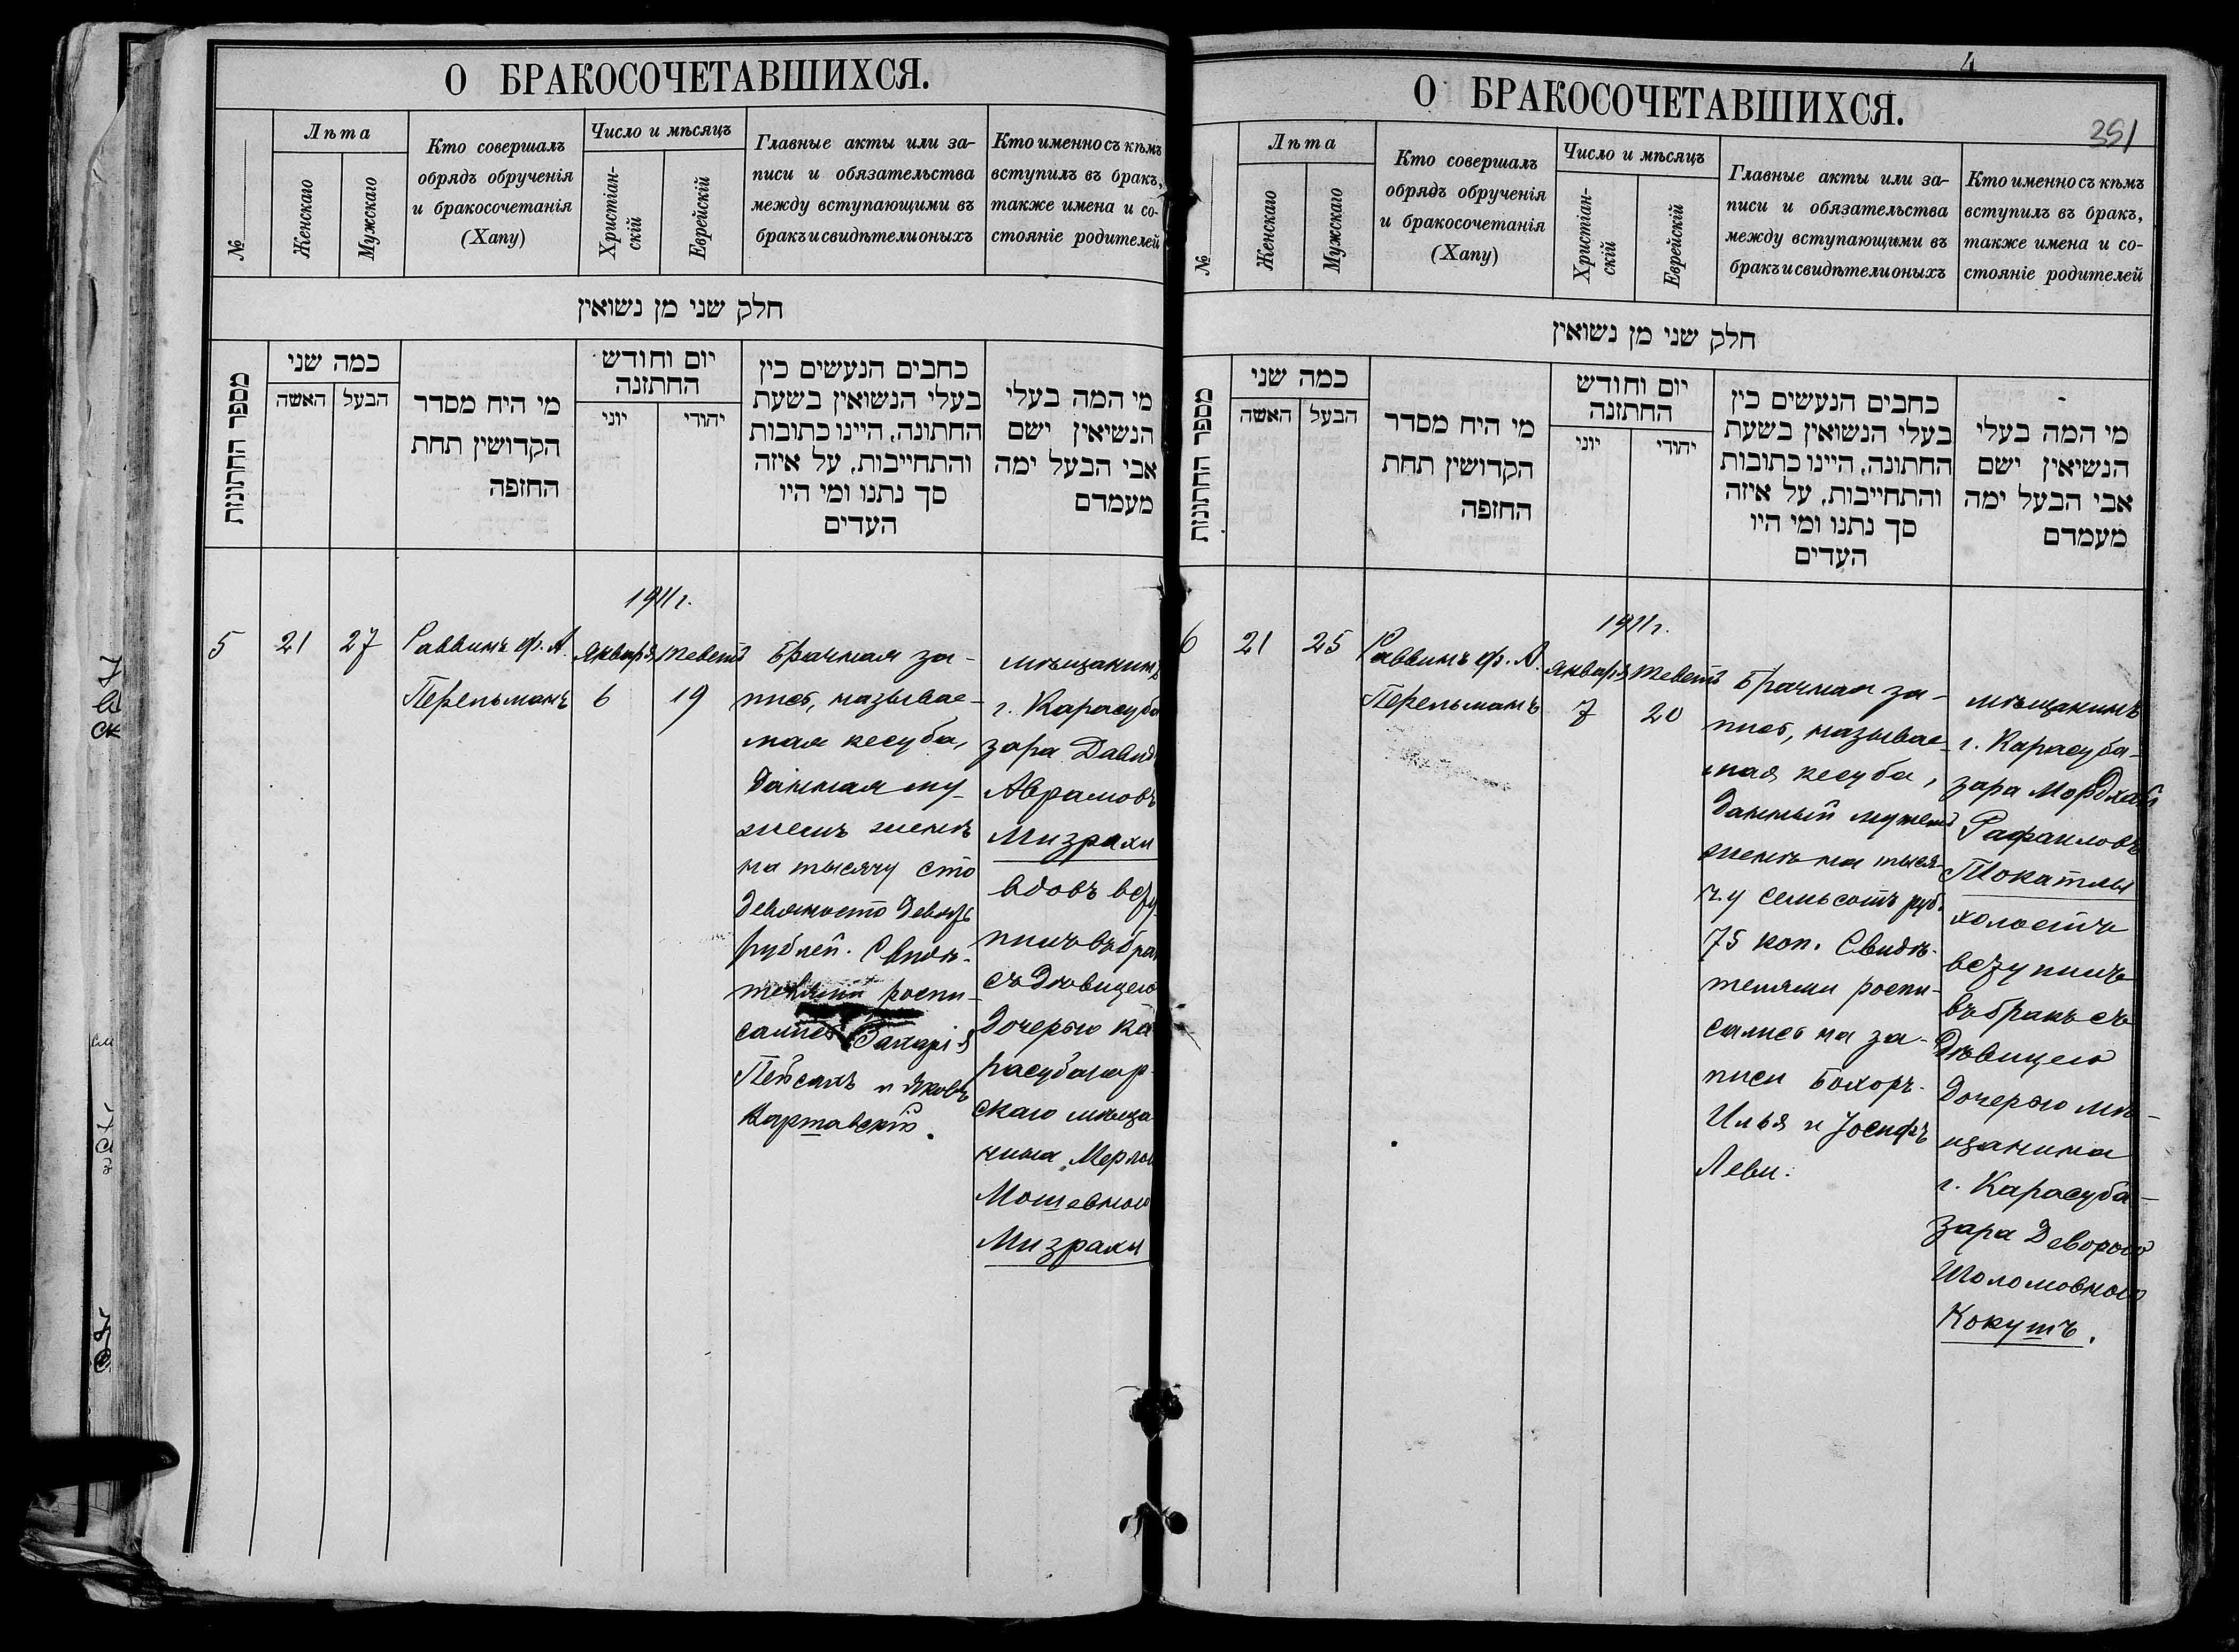 О БРАКОСОЧЕТАВШИХСЯ.
№
Лѣта
Женскаго
Мужскаго
Кто совершалъ
обрядъ обрученія
и бракосочетанія
(Хапу)
Число и мѣсяцъ
Христіан-
скій
Еврейскій
Главные акты или за-
писи и обязательства
между вступающими въ
бракъ и свидѣтели оныхъ
Кто именно съ кѣмъ
вступилъ въ бракъ,
также имена и со-
стояніе родителей
חלק שני מן נשואין
מספר החתונות
כמה שני
האשה
הבעל
מי היח מסדר
הקדושין תחת
החזפה
יום וחודש
החתזנה
יוני
יהודי
כחבים הנעשים כין
בעלי הנשואין בשעת
החתונה, היינו כתובות
והתחייבות, על איזה
סך נתנו ומי היו
העדים
מי המה בעלי
הנשיאין ישם
אבי הבעל ימה
מעמדם
5
21
27
Раввинъ ф. А.
Перельманъ
1911 г.
Январь
6
Тебетъ
19
Брачная за-
пись, называе-
мая кесуба,
данная му-
жемъ женѣ
на тысячу сто
девяносто девять
рублей. Свидѣ-
телями роспи-
сались Захарія
Пейсахъ и Яковъ
Варшавскій.
мѣщанинъ
г. Карасуба
зара Давид
Аврамовъ
Мизрахи
вдовъ всту-
пилъ въ бра
съ дѣвицею
дочерью Ка
расубазар-
скаго мѣща
нина
Мошевною
Мизрахи
4
351
О БРАКОСОЧЕТАВШИХСЯ.
№
Лѣта
Женскаго
Мужскаго
Кто совершалъ
обрядъ обрученія
и бракосочетанія
(Хапу)
Число и мѣсяцъ
Христіан-
скій
Еврейскій
Главные акты или за-
писи и обязательства
между вступающими въ
бракъ и свидѣтели оныхъ
Кто именно съ кѣмъ
вступилъ въ бракъ,
также имена и со-
стояніе родителей
חלק שני מן נשואין
מספר החתונות
כמה שני
האשה
הבעל
מי היח מסדר
הקדושין תחת
החזפה
יום וחודש
החתזנה
יוני
יהודי
כחבים הנעשים כין
בעלי הנשואין בשעת
החתונה, היינו כתובות
והתחייבות, על איזה
סך נתנו ומי היו
העדים
מי המה בעלי
הנשיאין ישם
אבי הבעל ימה
מעמדם
6
21
25
Раввинъ ф. А.
Перельманъ
1911 г.
Январь
7
Тебетъ
20
Брачная за-
пись, называе-
мая кесуба,
данный мужемъ
женѣ на тыся-
чу семьсотъ руб.
75 коп. Свидѣ-
телями роспи-
сались на за-
писи Бохоръ-
Илья и Іосифъ
Леви.
мѣщанинъ
г. Карасуба-
зара Мордхай
Рафаиловъ
Токатлы
холостъ
вступилъ
въ бракъ съ
дѣвицею
дочерью мѣ-
щанина
г. Карасуба-
зара Деворою
Шоломовною
Кокушъ.